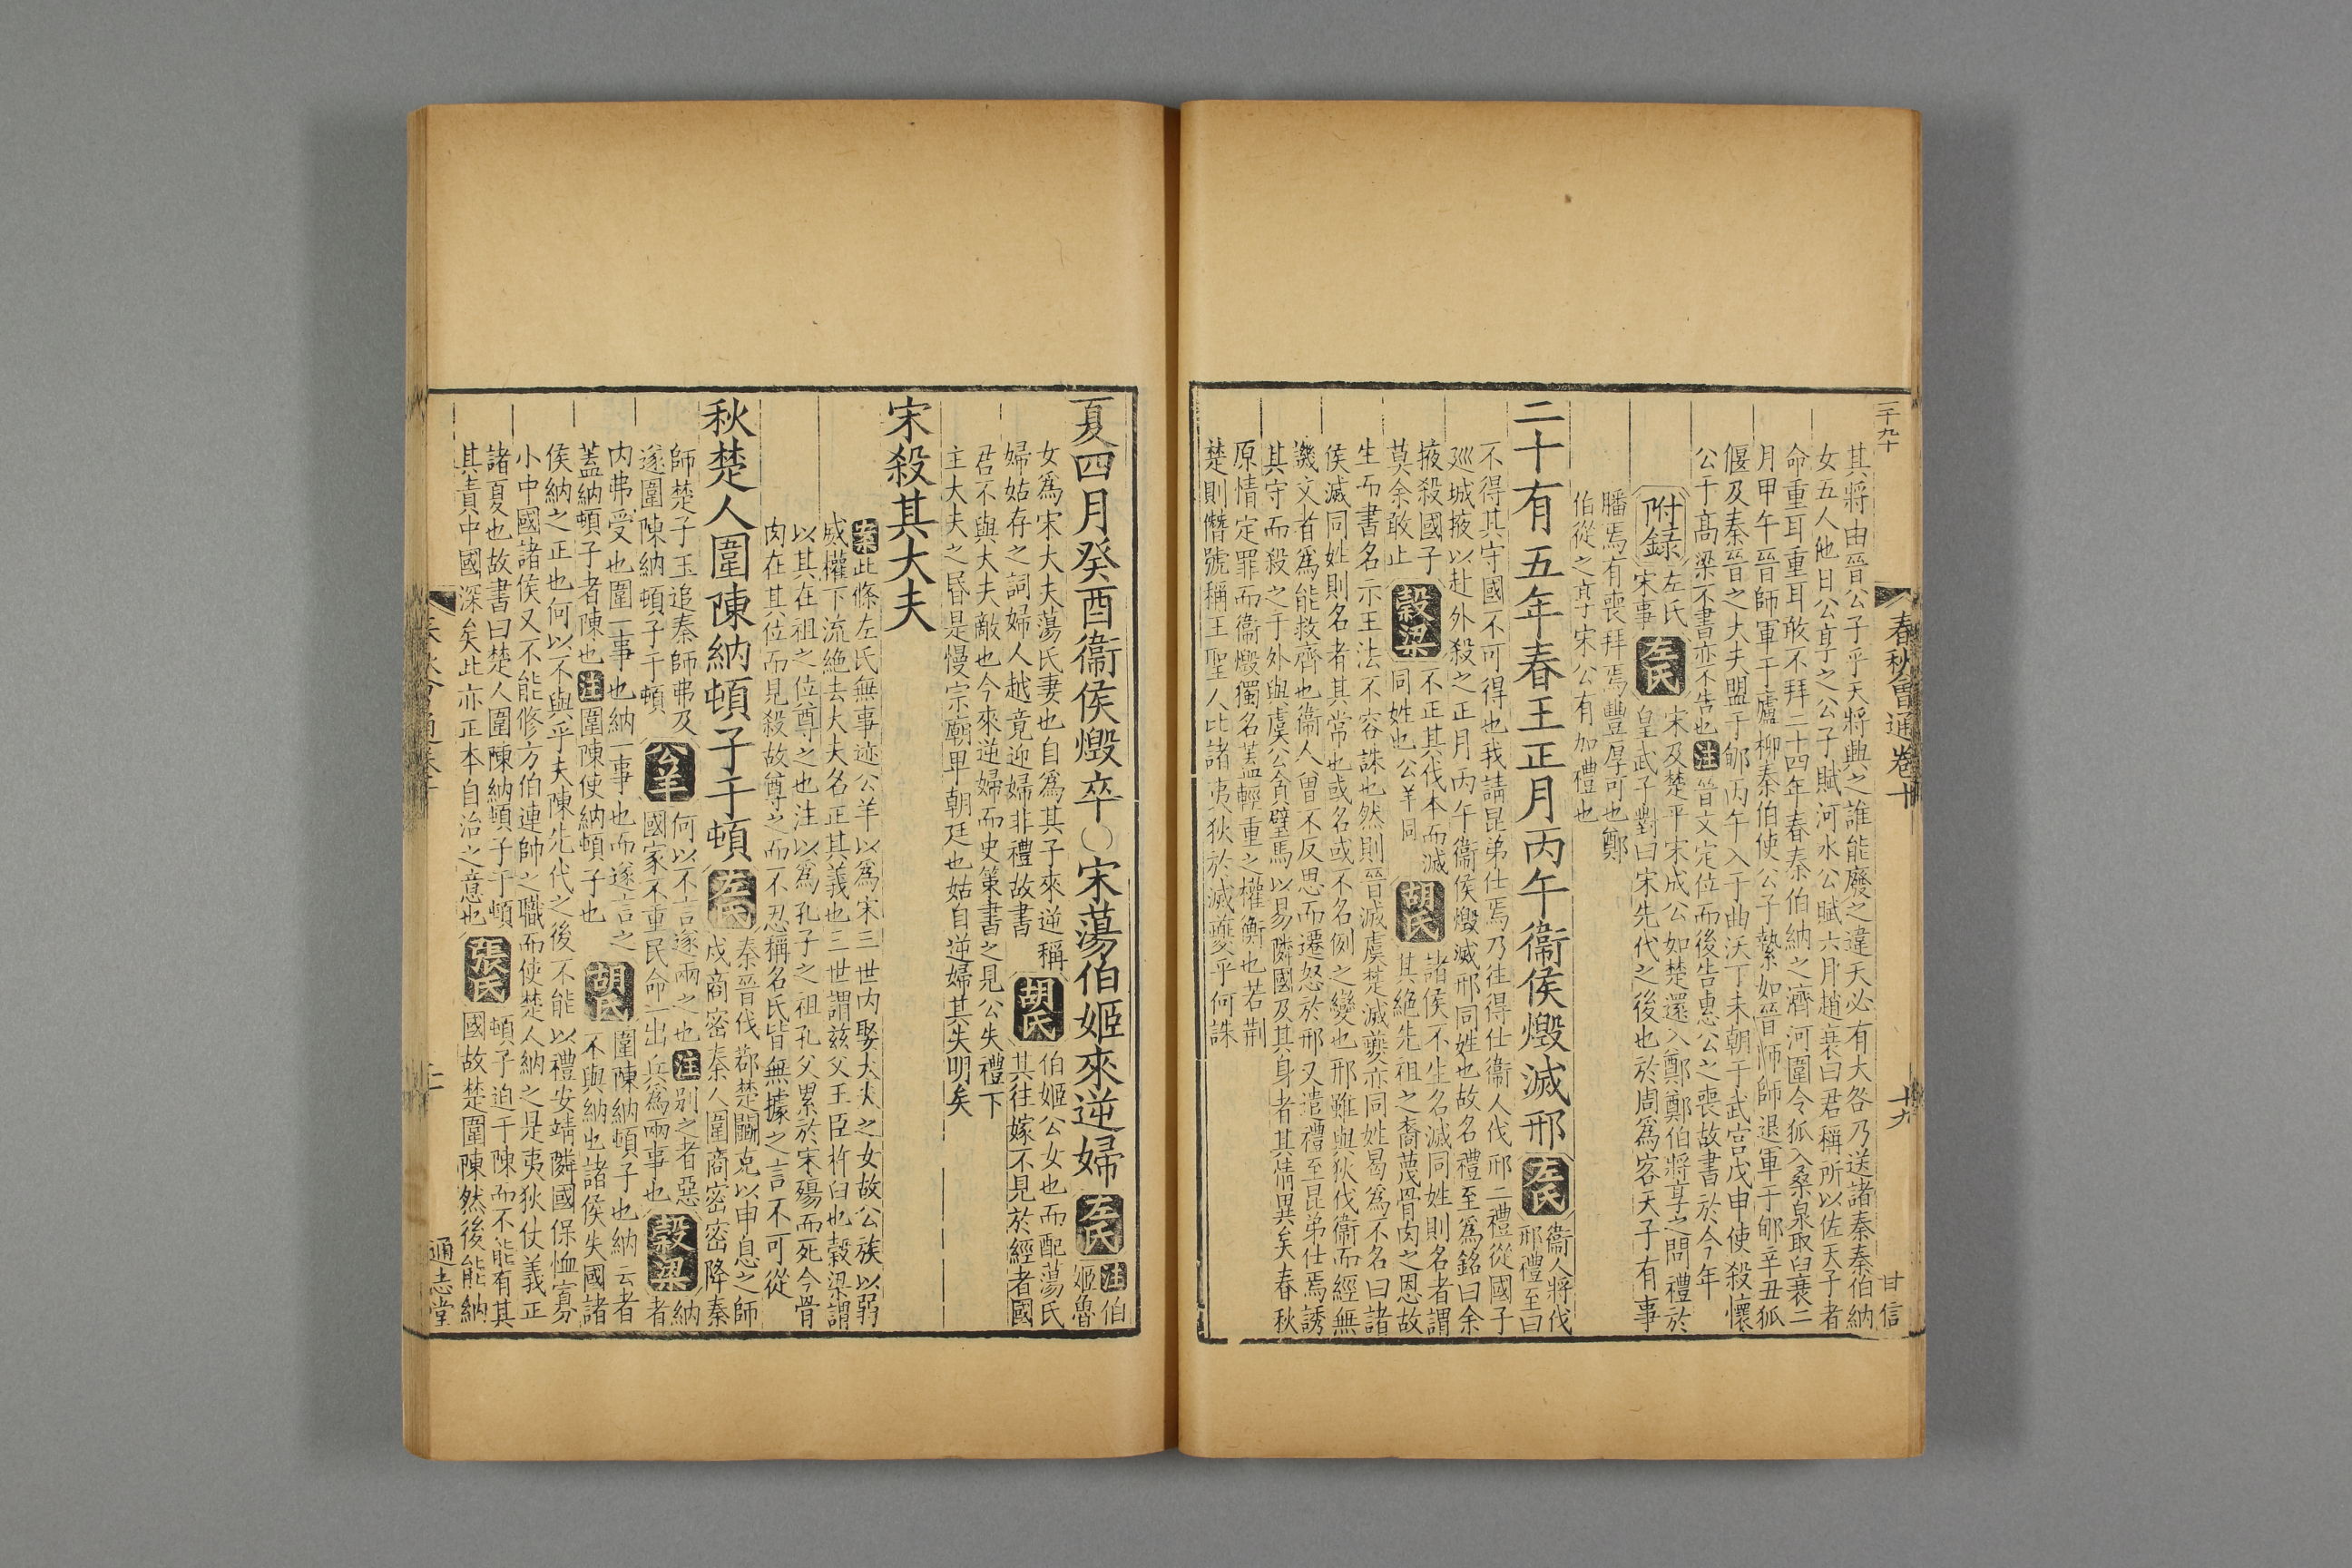 二千九十
春秋會通卷十
十九
甘信
其將由晉公子乎天將興之誰能廢之違天必有大咎乃送諸秦秦伯納
女五人他日公享之公子賦河水公賦六月趙衰曰君稱所以佐天子者
命重耳重耳敢不拜二十四年春秦伯納之濟河圍令狐入桑泉取臼衰二
月甲午晉師軍于廬柳秦伯使公子縶如晉師師退軍于郇辛丑狐
偃及秦晉之大夫盟于郇丙午入于曲沃丁未朝于武宮戊申使殺懷
公于高梁不書亦不告也注晉文定位而後告惠公之喪故書於今年
附錄左氏宋事左氏宋及楚平宋成公如楚還入鄭鄭伯將享之問禮於
皇武子對曰宋先代之後也於周爲客天子有事
膰焉有喪拜焉豐厚可也鄭
伯從之享宋公有加禮也
二十有五年春王正月丙午衞侯燬滅邢左氏衞人將伐
邢禮至曰
不得其守國不可得也我請昆弟仕焉乃往得仕衞人伐邢二禮從國子
巡城掖以赴外殺之正月丙午衞侯燬滅邢同姓也故名禮至爲銘曰余
掖殺國子莫余敢止穀梁不正其伐本而滅同姓也公羊同胡氏諸侯不生名滅同姓則名者謂
其絶先祖之裔蔑骨肉之恩故
生而書名示王法不容誅也然則晉滅虞楚滅夔亦同姓曷爲不名曰諸
侯滅同姓則名者其常也或名或不名例之變也邢雖與狄伐衞而經無
譏文者爲能救齊也衞人曾不反思而遷怒於邢又遣禮至昆弟仕焉誘
其守而殺之于外與虞公貪璧馬以易隣國及其身者其情異矣春秋
原情定罪而衞燬獨名蓋輕重之權衡也若荆
楚則僭號稱王聖人比諸夷狄於滅夔乎何誅
夏四月癸酉衞侯燬卒○宋蕩伯姬來逆婦左氏注伯
姬魯
女爲宋大夫蕩氏妻也自爲其子來逆稱
婦姑存之詞婦人越竟迎婦非禮故書胡氏伯姬公女也而配蕩氏
其往嫁不見於經者國
君不與大夫敵也今來逆婦而史策書之見公失禮下
主大夫之昬是慢宗廟卑朝廷也姑自逆婦其失明矣
宋殺其大夫
案此條左氏無事迹公羊以爲宋三世内娶大夫之女故公族以弱
威權下流絶去大夫名正其義也三世謂兹父王臣杵臼也穀梁謂
以其在祖之位尊之也注以爲孔子之祖孔父累於宋殤而死今骨
肉在其位而見殺故尊之而不忍稱名氏皆無據之言不可從
秋楚人圍陳納頓子于頓左氏秦晉伐鄀楚鬬克以申息之師
戍商密秦人圍商密密降秦
師楚子玉追秦師弗及
遂圍陳納頓子于頓公羊何以不言遂兩之也注别之者惡
國家不重民命一出兵爲兩事也穀梁納者
内弗受也圍一事也納一事也而遂言之
蓋納頓子者陳也注圍陳使納頓子也胡氏圍陳納頓子也納云者
不與納也諸侯失國諸
侯納之正也何以不與乎夫陳先代之後不能以禮安靖隣國保恤寡
小中國諸侯又不能修方伯連帥之職而使楚人納之是夷狄仗義正
諸夏也故書曰楚人圍陳納頓子于頓
其責中國深矣此亦正本自治之意也張氏頓子迫于陳而不能有其
國故楚圍陳然後能納
通志堂